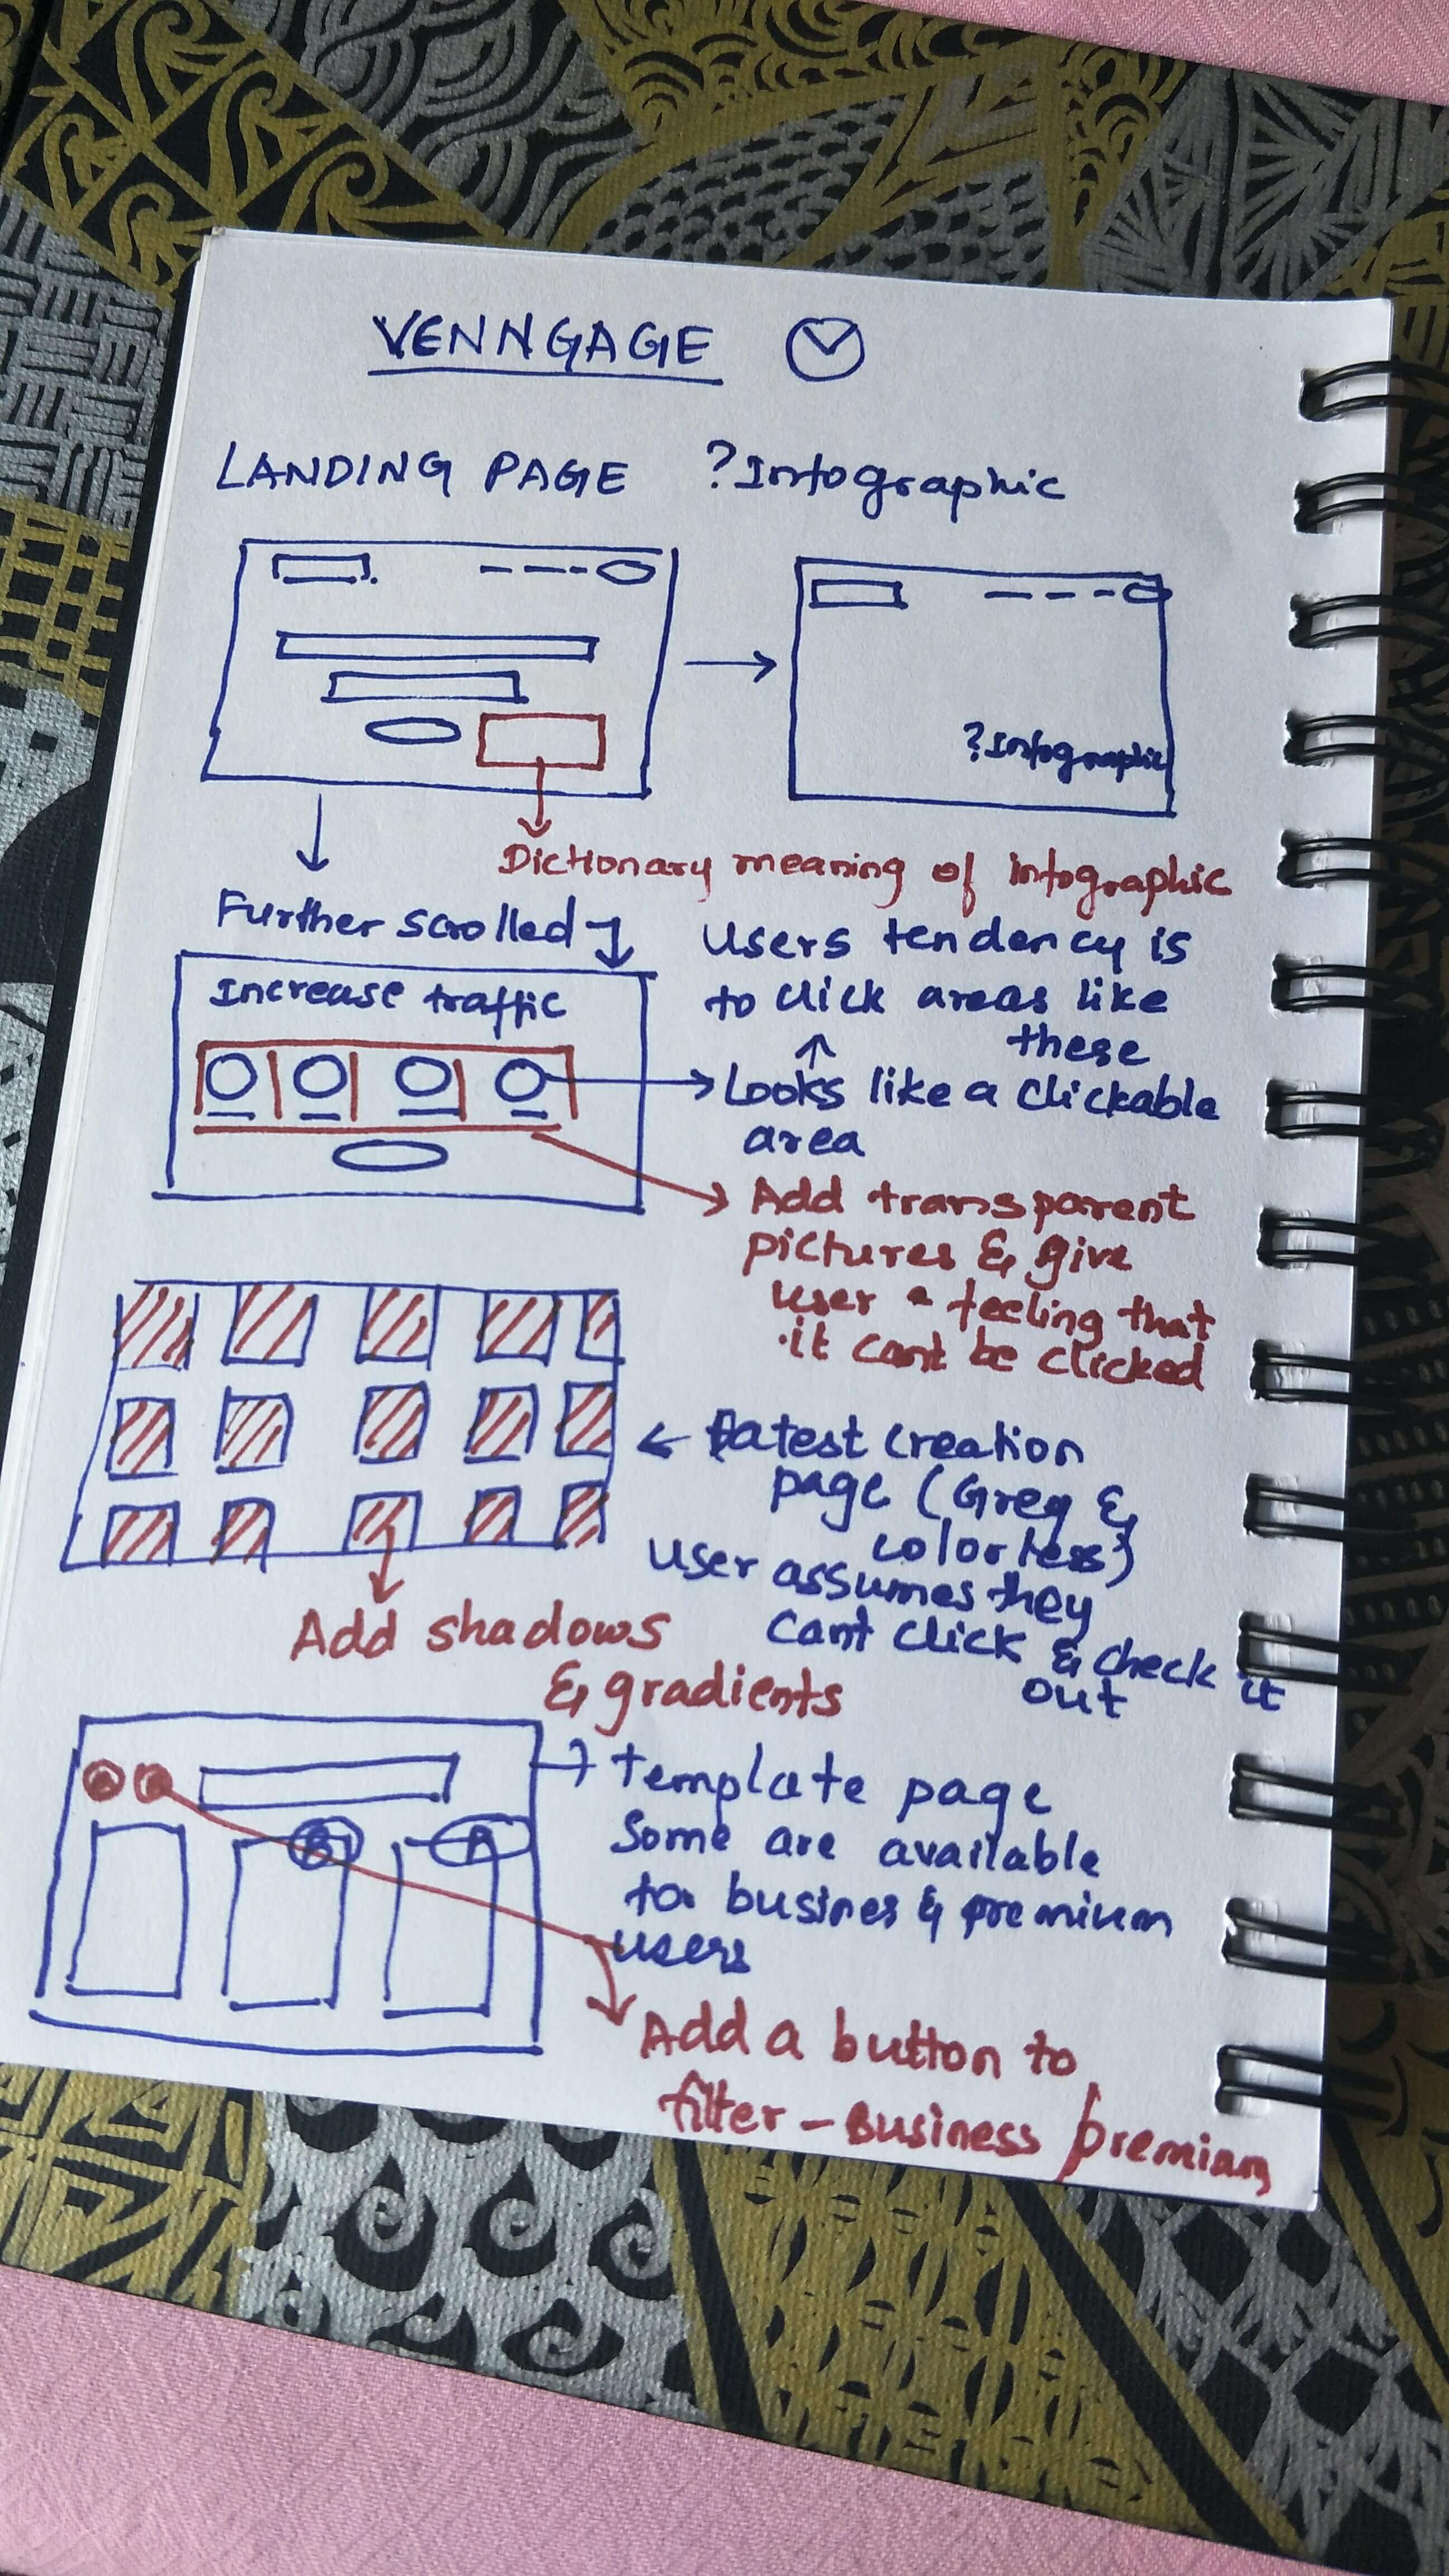 VENNGAGE
LANDING PAGE ?Infographic
?Infographic
Dictionary meaning of infographic
Further scrolled
Increase traffic
Users tendency is
to click areas like
these
Looks like a clickable
area
Add transparent
pictures & give
user a feeling that
it cant be clicked
Latest creation
page (Grey &
colorless)
User assumes they
cant click & check it
out
Add shadows
& gradients
Template page
Some are available
for busines & premium
users
B
P
Add a button to
filter - Business / premium